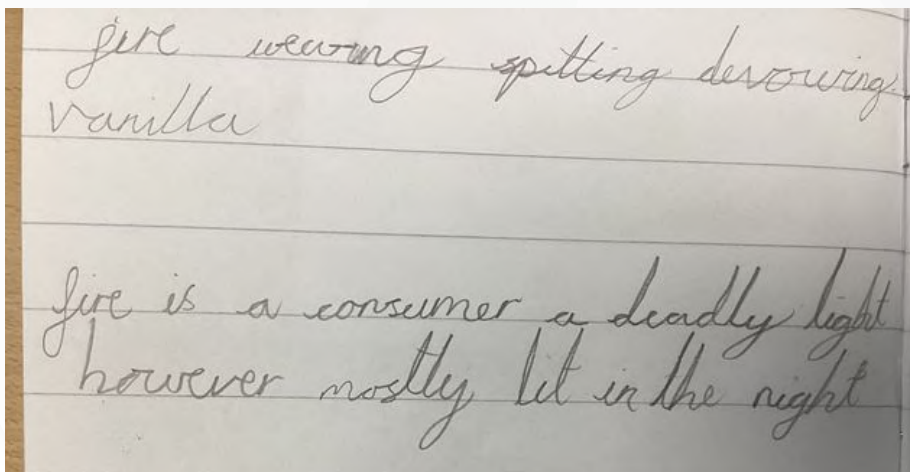 fire wearing spitting devouring.
vanilla
fire is a consumer a deadly light
however mostly lit in the night